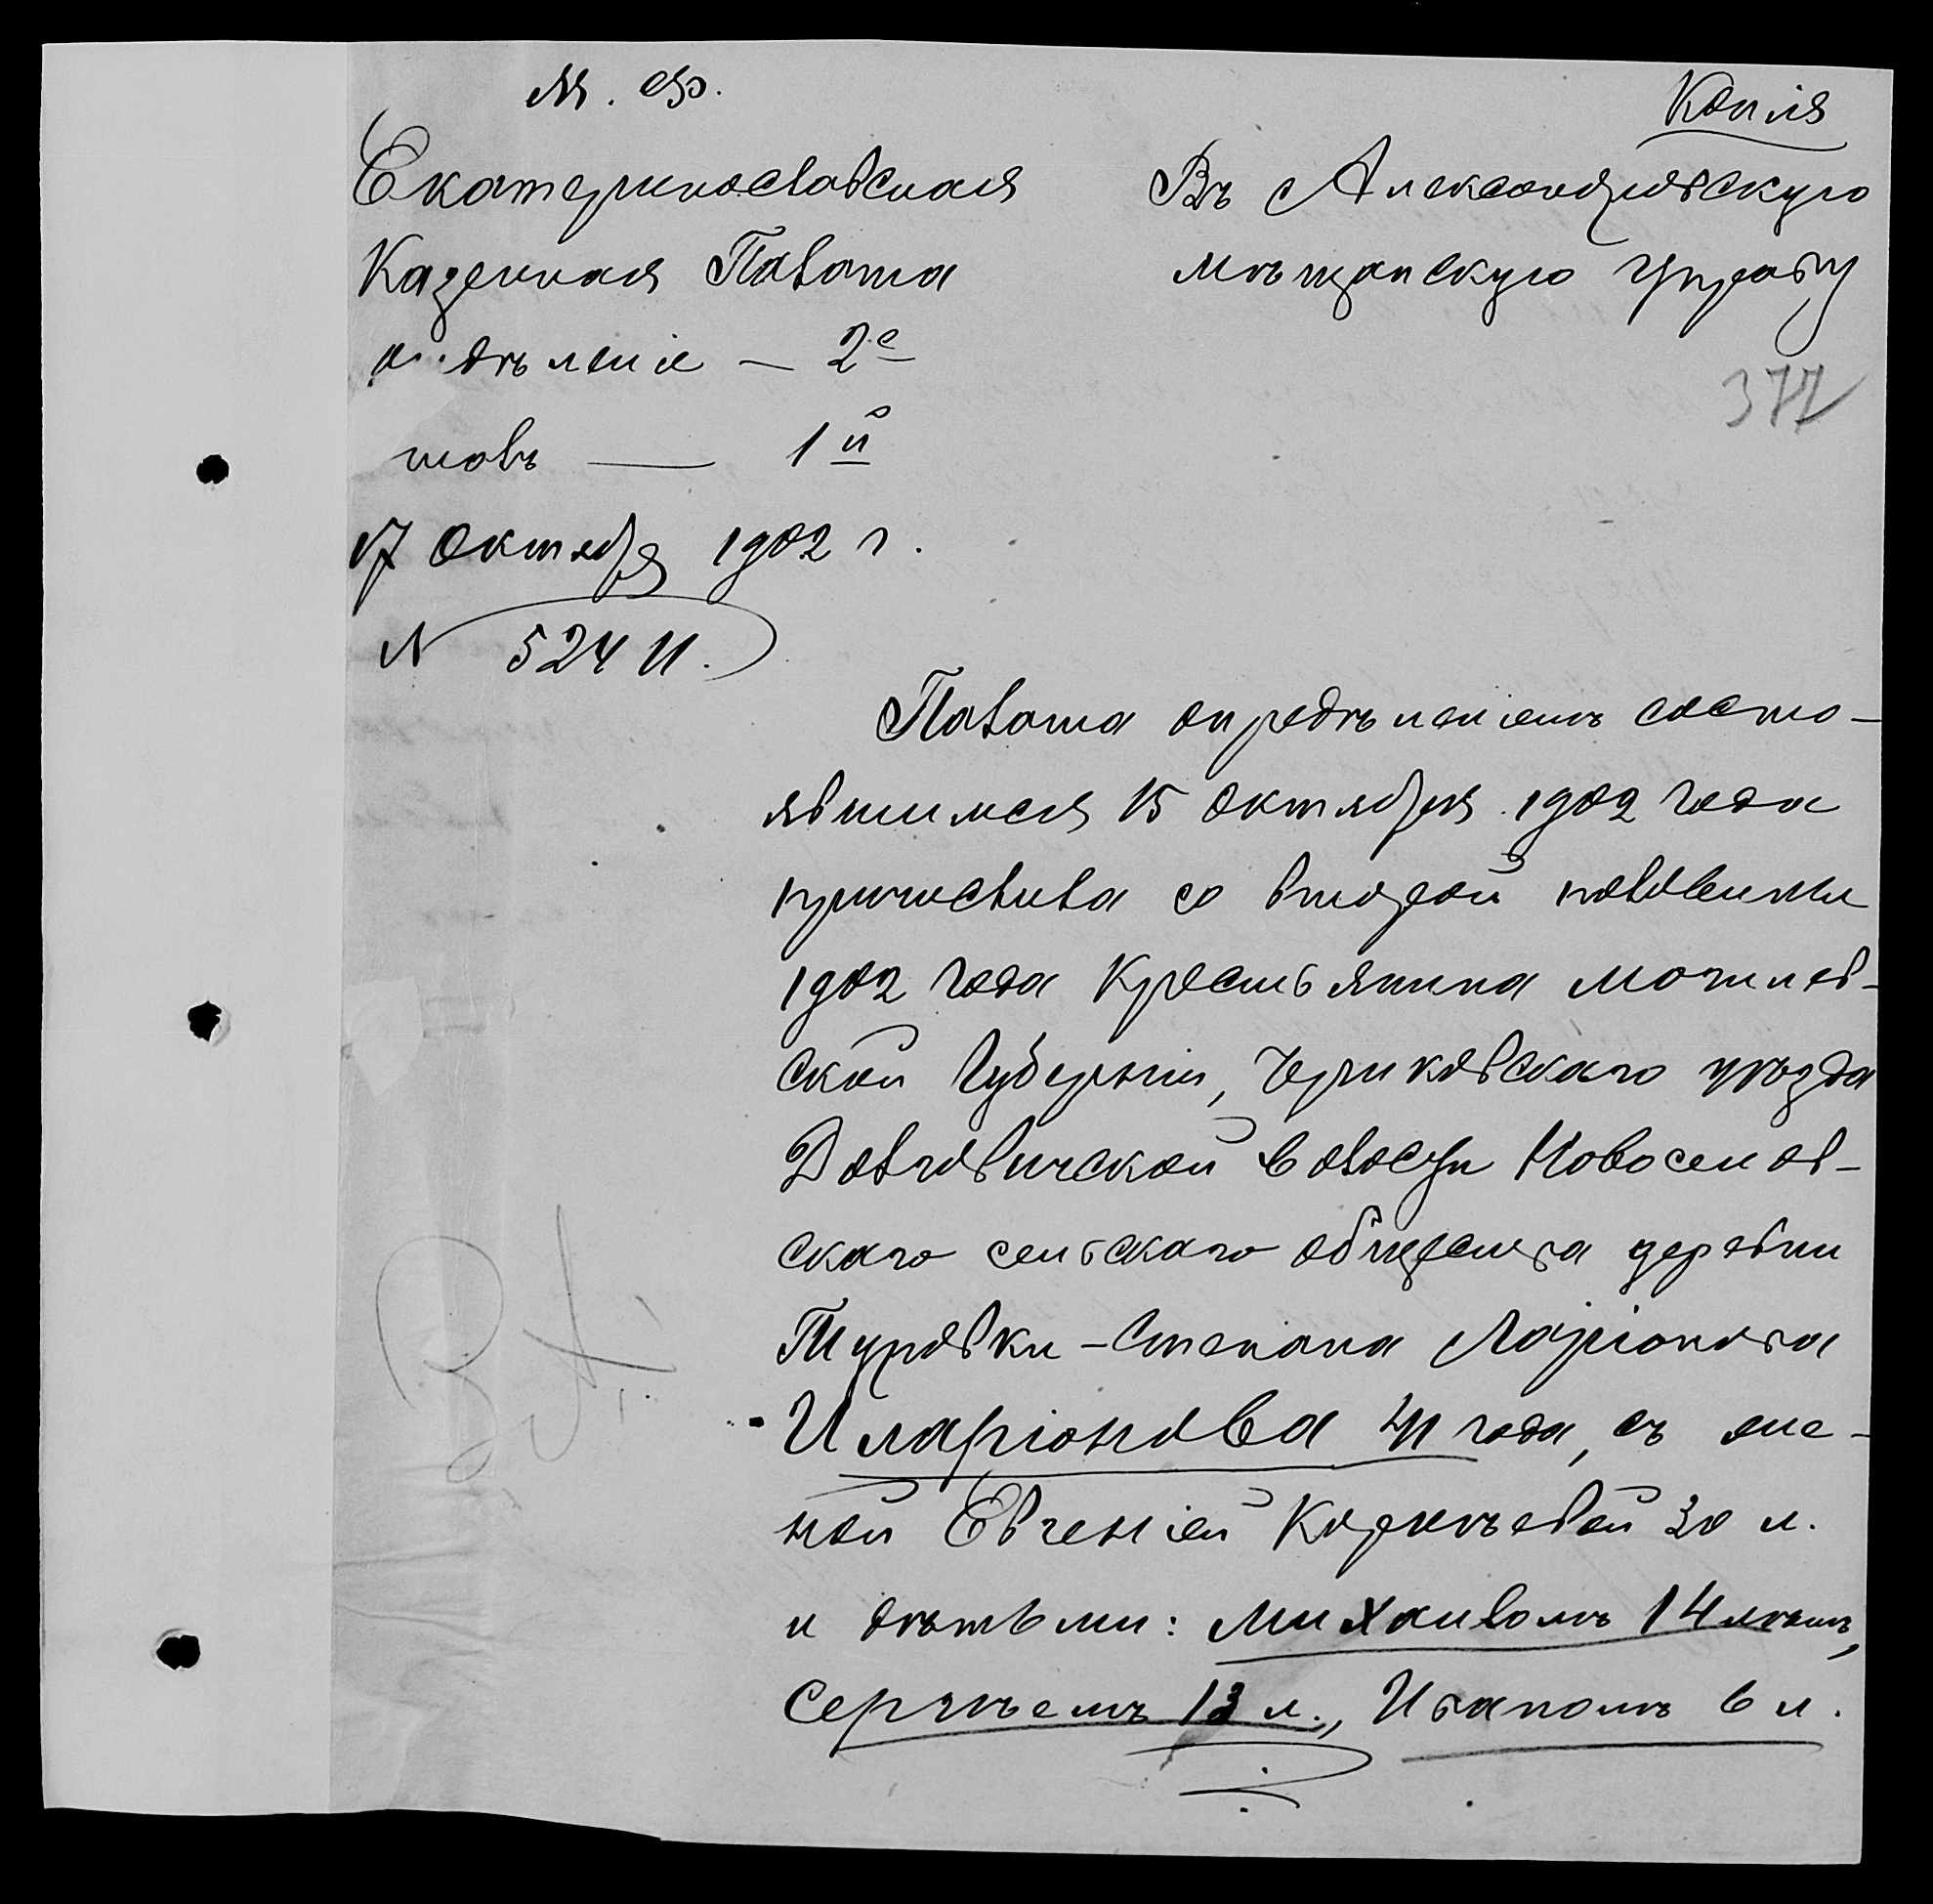 М. Ф.
Копія
Екатеринославская
Казенная Палата
отдѣленіе — 2е
столъ — 1й
17 Октября 1902 г.
N 52411.
Въ Александровскую
мѣщанскую Управу
377
Палата опредѣленіемъ состо-
явшимся 15 Октября 1902 года
причислила со второй половины
1902 года Крестьянина Могилев-
ской Губерніи, Чериковскаго уѣзда
Долговичской волости Новоселов-
скаго сельскаго общества деревни
Туровки - Степана Ларіонова
Иларіонова 41 года, съ же-
ной Евгеніей Корнѣевой 30 л.
и дѣтьми: Михаиломъ 14 лѣтъ,
Сергѣемъ 13 л., Иваномъ 6 л.